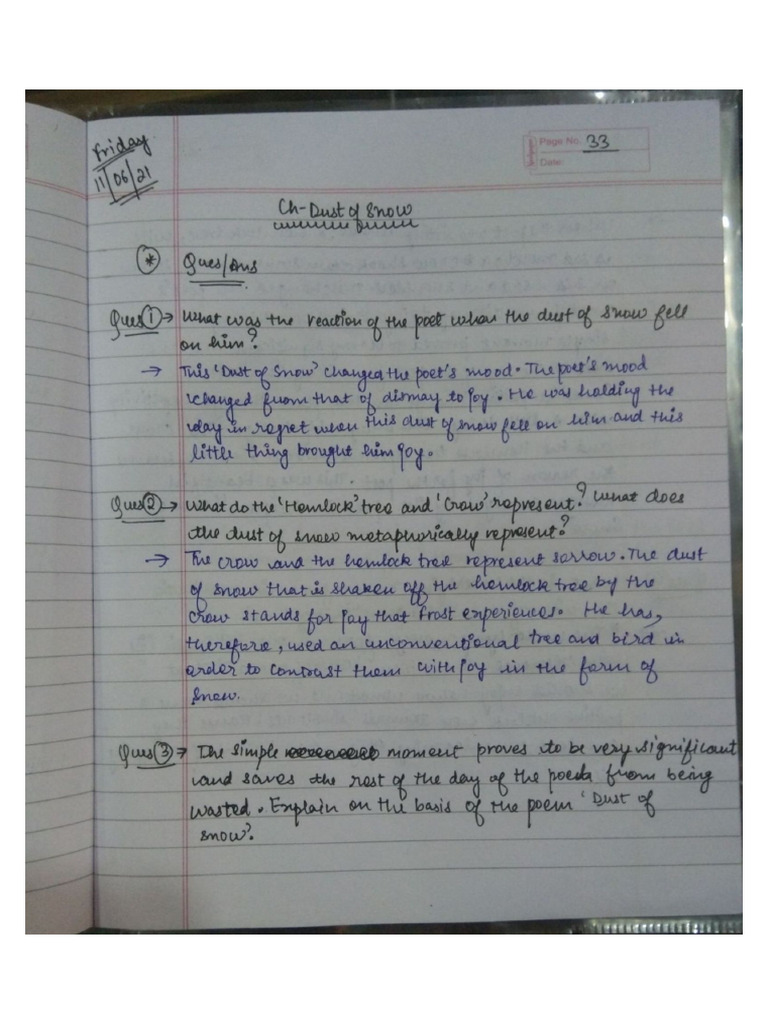 Friday
11/06/21
Page No. 33
Date:
Ch-Dust of Snow
* Ques/Ans
Ques 1 → What was the reaction of the poet when the dust of snow fell
on him?
→ This 'Dust of Snow' changed the poet's mood. The poet's mood
changed from that of dismay to joy. He was holding the
day in regret when this dust of snow fell on him and this
little thing brought him joy.
Ques 2 → What do the 'Hemlock' tree and 'Crow' represent? What does
the dust of snow metaphorically represent?
→ The crow and the hemlock tree represent sorrow. The dust
of snow that is shaken off the hemlock tree by the
crow stands for joy that Frost experiences. He has,
therefore, used an unconventional tree and bird in
order to contrast them with joy in the form of
snow.
Ques 3 → The simple moment proves to be very significant
and saves the rest of the day of the poet from being
wasted. Explain on the basis of the poem 'Dust of
snow'.